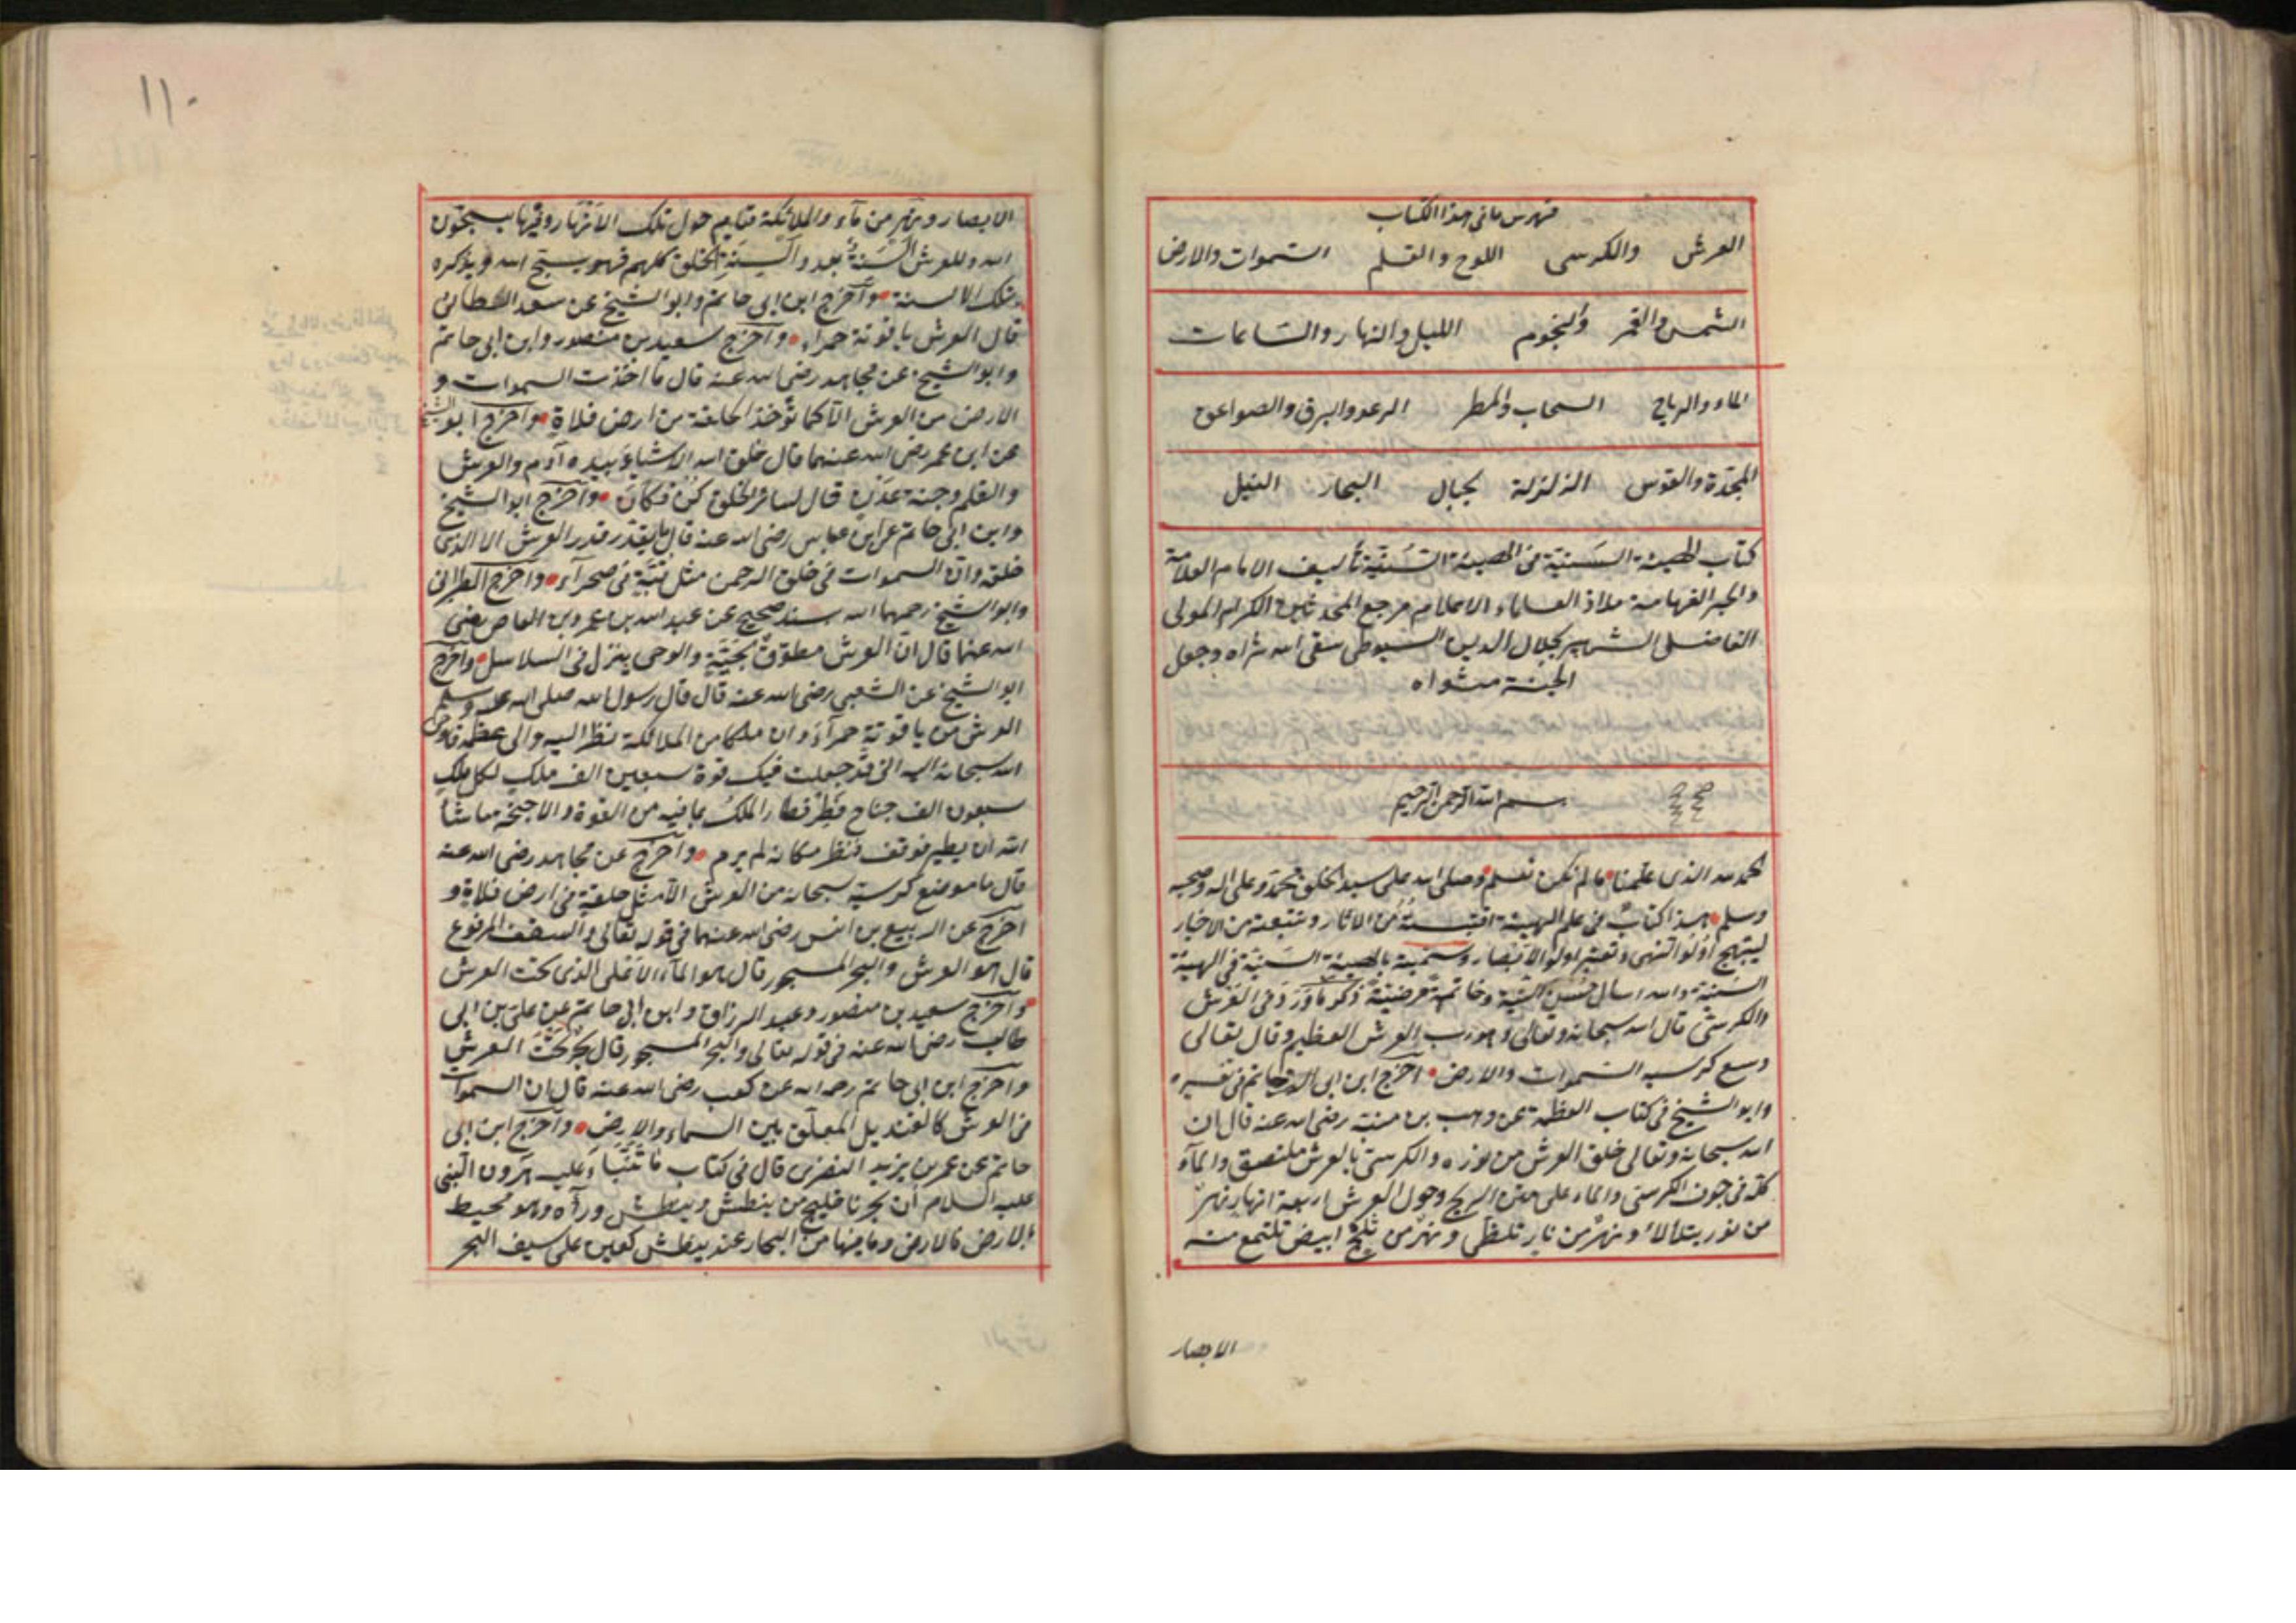 فهرس ما في هذا الكتاب
العرش والكرسى اللوح والقلم السموات والارض
الشمس والقمر والنجوم الليل والنهار والساعات
الماء والرياح السحاب والمطر الرعد والبرق والصواعق
المجرّة والقوس الزلزلة الجبال البحار النيل
كتاب الهيئة السَنيّة فى الهيئة السُنيّة تأليف الامام العلامة
والحبر الفهامة ملاذ العلماء الاعلام مرجع المحدثين الكرام المولى
الفاضل الشهير بجلال الدين السيوطى سقى الله ثراه وجعل
الجنة مثواه
بسم الله الرحمن الرحيم
الحمد لله الذى علمنا ما لم نكن نعلم وصلى الله على سيد الخلق محمد وعلى اله وصحبه
وسلم هذا كتاب فى علم الهيئة اقتبسته من الاثار وتتبعته من الاخبار
ليبتهج اولوا النهى وتعتبر اولوا الابصار وسميته بالهيئة السَنيّة فى الهيئة
السنية والله اسال حُسن النية وخاتمة مرضيّة ذكر ما وَرَدَ فى العَرش
والكرسىّ قال الله سبحانه وتعالى وهو رب العرش العظيم وقال تعالى
وسع كرسيه السموات والارض اخرج ابن ابى حاتم فى تفسيره
وابو الشيخ فى كتاب العظمة عن وهب بن منبّه رضى الله عنه قال ان
الله سبحانه وتعالى خلق العرش من نوره والكرسىّ بالعرش ملتصق والمآء
كلّه فى جوف الكرسى والماء على متن الريح وحول العرش اربعة انهار نهرٌ
من نور يتلألأ ونهرٌ من نار تلظّى ونهرٌ من ثلج ابيض تلتمع منه
الابصار
١١٠
الابصار ونهر من مآء والملائكة قيام حول تلك الانهار وفيها يسبحون
الله وللعرش السنة بعدد السِنَةِ الخلق كلهم فهو يسبح الله ويذكره
بتلك الالسنة واخرج ابن ابى حاتم وابو الشيخ عن سعد الطائى
قال العرش ياقوتة حمراء واخرج سعيد بن منصور وابن ابى حاتم
وابو الشيخ عن مجاهد رضى الله عنه قال ما اخذت السموات و
الارض من العرش الّا كما تُؤخذ الحلقة من ارض فلاة واخرج ابو الشيخ
عن ابن عمر رضى الله عنهما قال خلق الله الاشياءَ بيده آدم والعرش
والقلم وجنة عَدْنٍ قال لسائر الخلق كُنْ فكان واخرج ابو الشيخ
وابن ابى حاتم عن ابن عباس رضى الله عنه قال ما يقدر قدر العرش الا الذى
خلقه وانّ السموات فى خلق الرحمن مثل قبّة فى صحرآء واخرج الطبرانى
وابو الشيخ رحمهما الله بسند صحيح عن عبد الله بن عمرو بن العاص رضى
الله عنهما قال انّ العرش مطوّقٌ بحيّةٍ والوحى ينزل فى السلاسل واخرج
ابو الشيخ عن الشعبى رضى الله عنه قال قال رسول الله صلى الله عليه وسلم
العرش من ياقوتةٍ حمرآءَ وان ملكا من الملائكة نظر اليه والى عظمه فاوحى
الله سبحانه اليه انى قد جعلت فيك قوة سبعين الف ملكٍ لكل ملكٍ
سبعون الف جناح فَطِرْ فطار الملكُ بما فيه من القوة والاجنحة ما شآ
الله ان يطير فوقف فنظر مكانه لم يرم واخرج عن مجاهد رضى الله عنه
قال ما موضع كرسيه سبحانه من العرش الّا مثل حلقةٍ فى ارض فلاةٍ و
اخرج عن الربيع بن انس رضى الله عنهما فى قوله تعالى والسقف المرفوع
قال هو العرش والبحر المسجور قال هو المآء الاَعْلى الذى تحت العرش
واخرج سعيد بن منصور وعبد الرزاق وابن ابى حاتم عن علىّ بن ابى
طالب رضى الله عنه فى قوله تعالى والبحر المسجور قال بحرٌ تحت العرش
واخرج ابن ابى حاتم رحمه الله عن كعب رضى الله عنه قال ان السموات
فى العرش كالقنديل المعلّق بين السماء والارض واخرج ابن ابى
حاتم عن عمر بن يزيد النضرى قال فى كتاب ما تَنَبّأ عليه هرون النبى
عليه السلام ان بحرنا خليج من ينطش وينطش ورآه وهو محيط
بالارض فالارض وما فيها من البحار عند ينطش كعين على سيف البحر